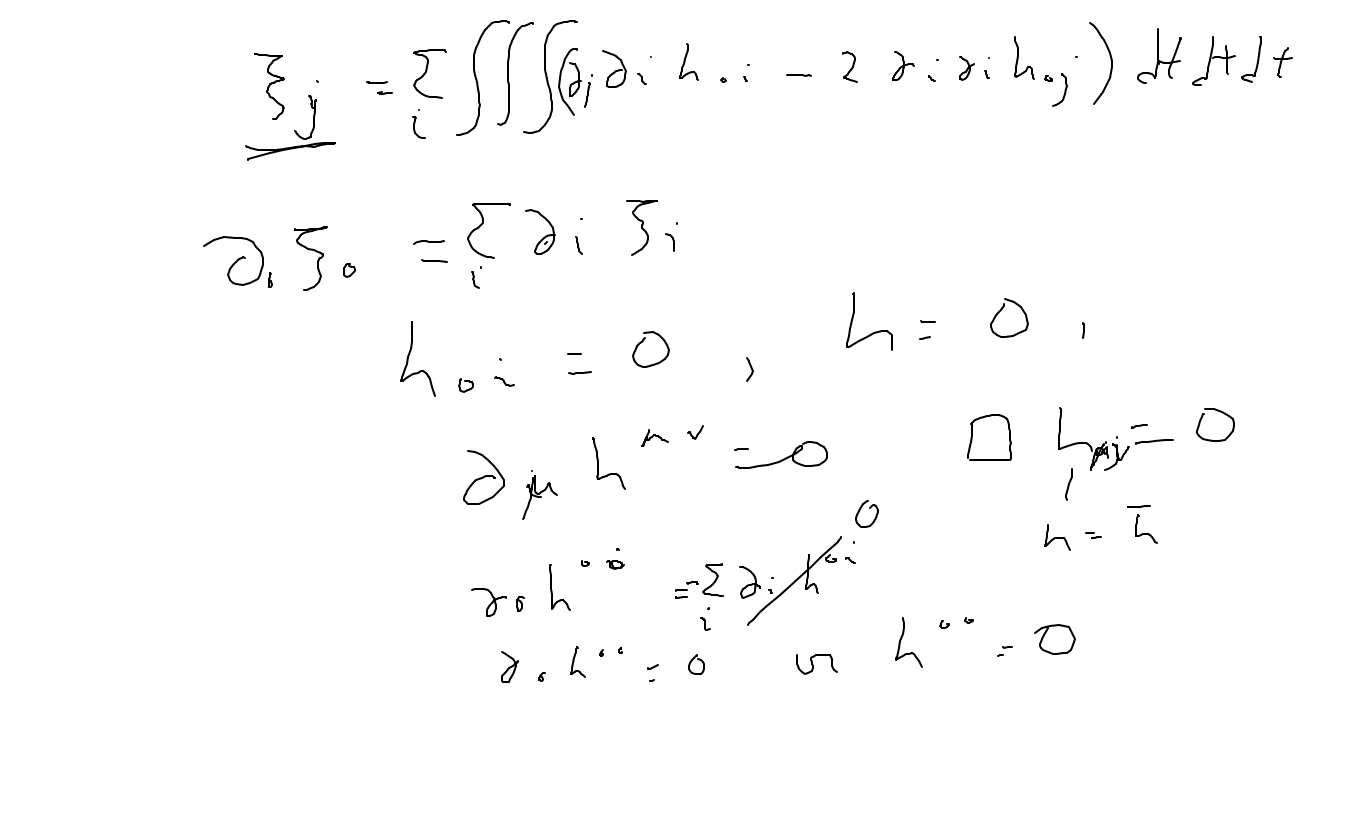 ξ_j = Σ_i ∫∫∫(∂_j ∂_i h_{0i} − 2 ∂_i ∂_i h_{0j}) dt dt dt
∂_0 ξ_0 = Σ_i ∂_i ξ_i
h_{0i} = 0 , h = 0 ,
∂_μ h^{μν} = 0 □ h_{μν} = 0
h = h̄
∂_0 h^{00} = −Σ_i ∂_i h^{0i} 0
∂_0 h^{00} = 0 or h^{00} = 0